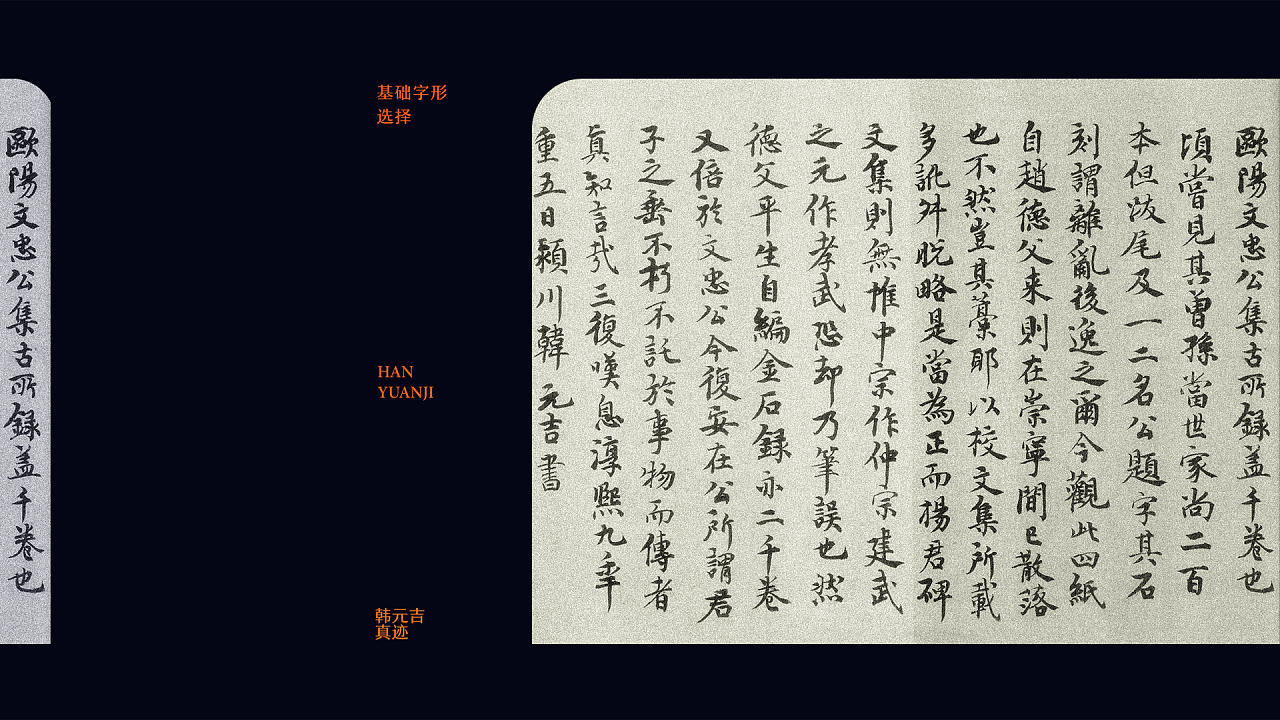 歐陽文忠公集古所録盖千卷也
基础字形
选择
HAN
YUANJI
韩元吉
真迹
歐陽文忠公集古所録盖千卷也
頃嘗見其曾孫當世家尚二百
本但跋尾及一二名公題字其石
刻謂離亂後逸之爾今觀此四紙
自趙德父来則在崇寧間已散落
也不然豈其藁耶以校文集所載
多訛舛脱略是當為正而楊君碑
文集則無惟中宗作仲宗建武
之元作孝武恐却乃筆誤也然
德父平生自編金石録亦二千卷
又倍於文忠公今復安在公所謂君
子之垂不朽不託於事物而傳者
真知言哉三復嘆息淳熙九年
重五日潁川韓元吉書